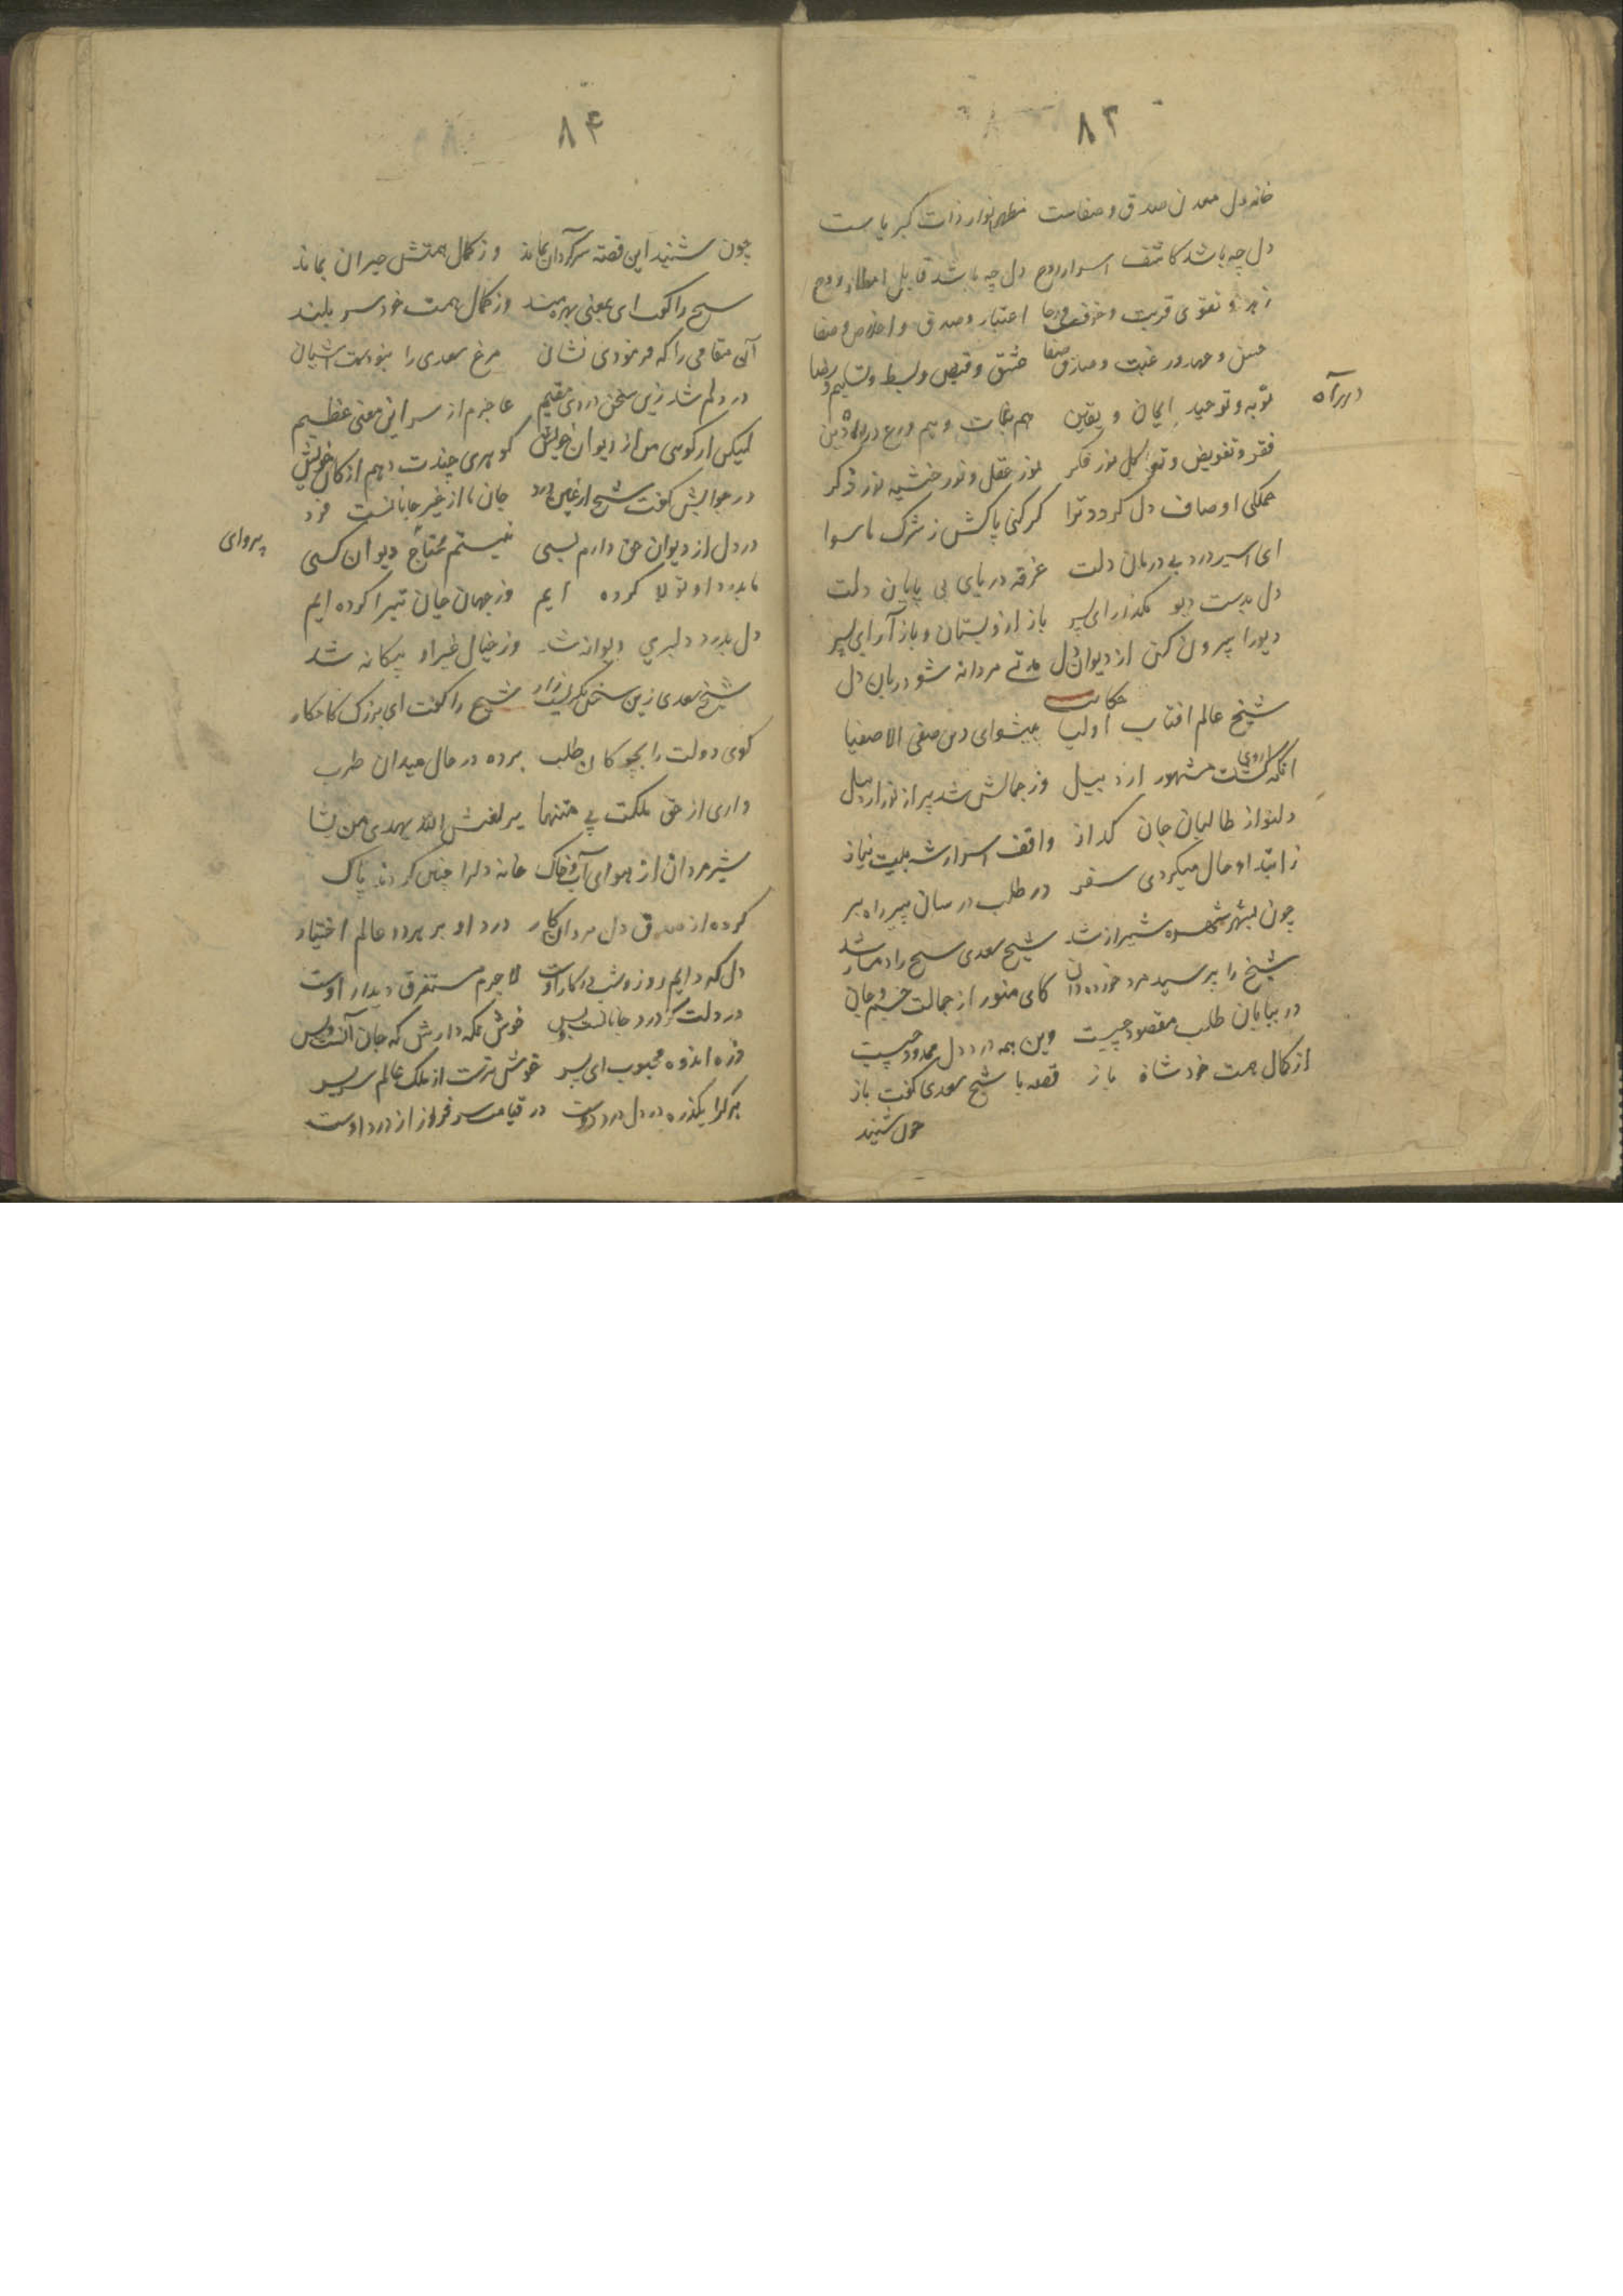 ۸۳
خانه دل معدن صدق و صفاست مظهر انوار ذات کبریاست
دل چه باشد کاشف اسرار روح دل چه باشد قابل روح
زهد و تقوی قربت و خوف و رجا اعتبار و صدق و اخلاص و صفا
و رغبت و صفا عشق و قبض و بسط و تسلیم و رضا
توبه و توحید ایمان و یقین هم نجات و هم ورع در راه دین
در راه
فقر و تفویض و توکل نور فکر نور عقل و نور خشیه نور ذکر
جملکی اوصاف دل کردد ترا کر کنی پاکش ز شرک ما سوا
ای اسیر درد بی درمان دلت غرقه دریای بی پایان دلت
دل بدست دیو مکذار ای پسر باز ازو بستان و باز آر ای پسر
دیو را بیرون کن از دیوان دل مردانه شو دربان دل
حکایت
شیخ عالم افتاب اولیا پیشوای دین صفی الاصفیا
انکه کشت مشهور اردبیل وز جمالش شد پر از نور اردبیل
دلنواز طالبان جان کداز واقف اسرار نیاز
ز ابتداء حال میکردی سفر در طلب پیر راهبر
چون بشهر شیراز شد شیخ سعدی شیخ را شد
شیخ را پرسید مرد خورده دان کای منور از جمالت جسم و جان
در بیابان طلب مقصود چیست وین همه درد دل چیست
از کمال همت خود شاه باز قصه با شیخ سعدی کفت باز
چون شنید
۸۴
چون شنید این قصه سرکردان بماند وز کمال همتش حیران بماند
شیخ را کفت ای بمعنی بهره مند وز کمال همت خود سر بلند
آن مقامی را که فرمودی نشان مرغ سعدی را نبودست آشیان
در دلم شد زین سخن دردی مقیم عاجزم از سر این معنی عظیم
لیکن ار کوئی من از دیوان خویش کوهری چندت دهم از کان خویش
در جوابش کفت شیخ از عین درد جان ما از غیر جانانست فرد
در دل از دیوان حق دارم بسی نیستم محتاج دیوان کسی
پروای
ما بدرد او تولا کرده ایم وز جهان جان تبرا کرده ایم
دل بدرد دلبری دیوانه شد وز خیال غیر او بیکانه شد
شیخ سعدی زین سخن بکریست زار شیخ را کفت ای بزرک کامکار
کوی دولت را بچوکان طلب برده در حال میدان طرب
داری از حق ملکت بی منتها یرلغش الله یهدی من یشا
شیر مردان از هوای آب و خاک خانه دلرا چنین کردند پاک
کرده از صدق دل مردان کار درد او بر هر دو عالم اختیار
دل که دایم روز و شب در کار اوست لاجرم مستغرق دیدار اوست
در دلت کر درد جانانست و بس خوش نکه دارش که جان آنست و بس
ذره اندوه محبوب ای پسر خوشترست از ملک عالم سر بسر
هر کرا یکذره در دل درد دوست در قیامت سرفراز از درد اوست